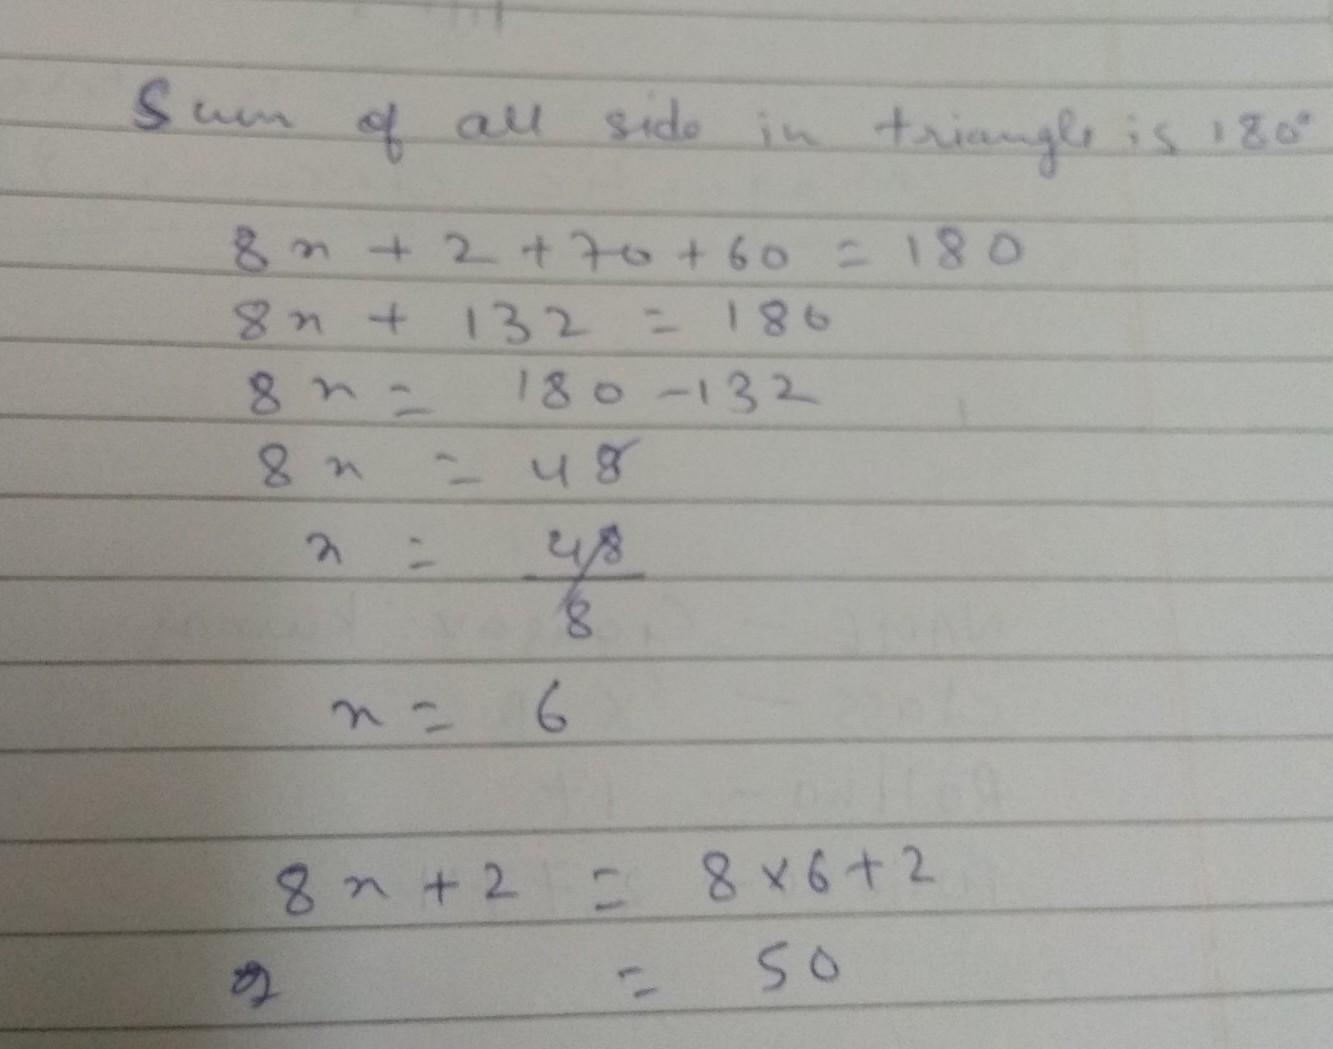 Sum of all side in triangle is 180°
8x + 2 + 70 + 60 = 180
8x + 132 = 180
8x = 180 - 132
8x = 48
x = 48/8
x = 6
8x + 2 = 8 × 6 + 2
= 50